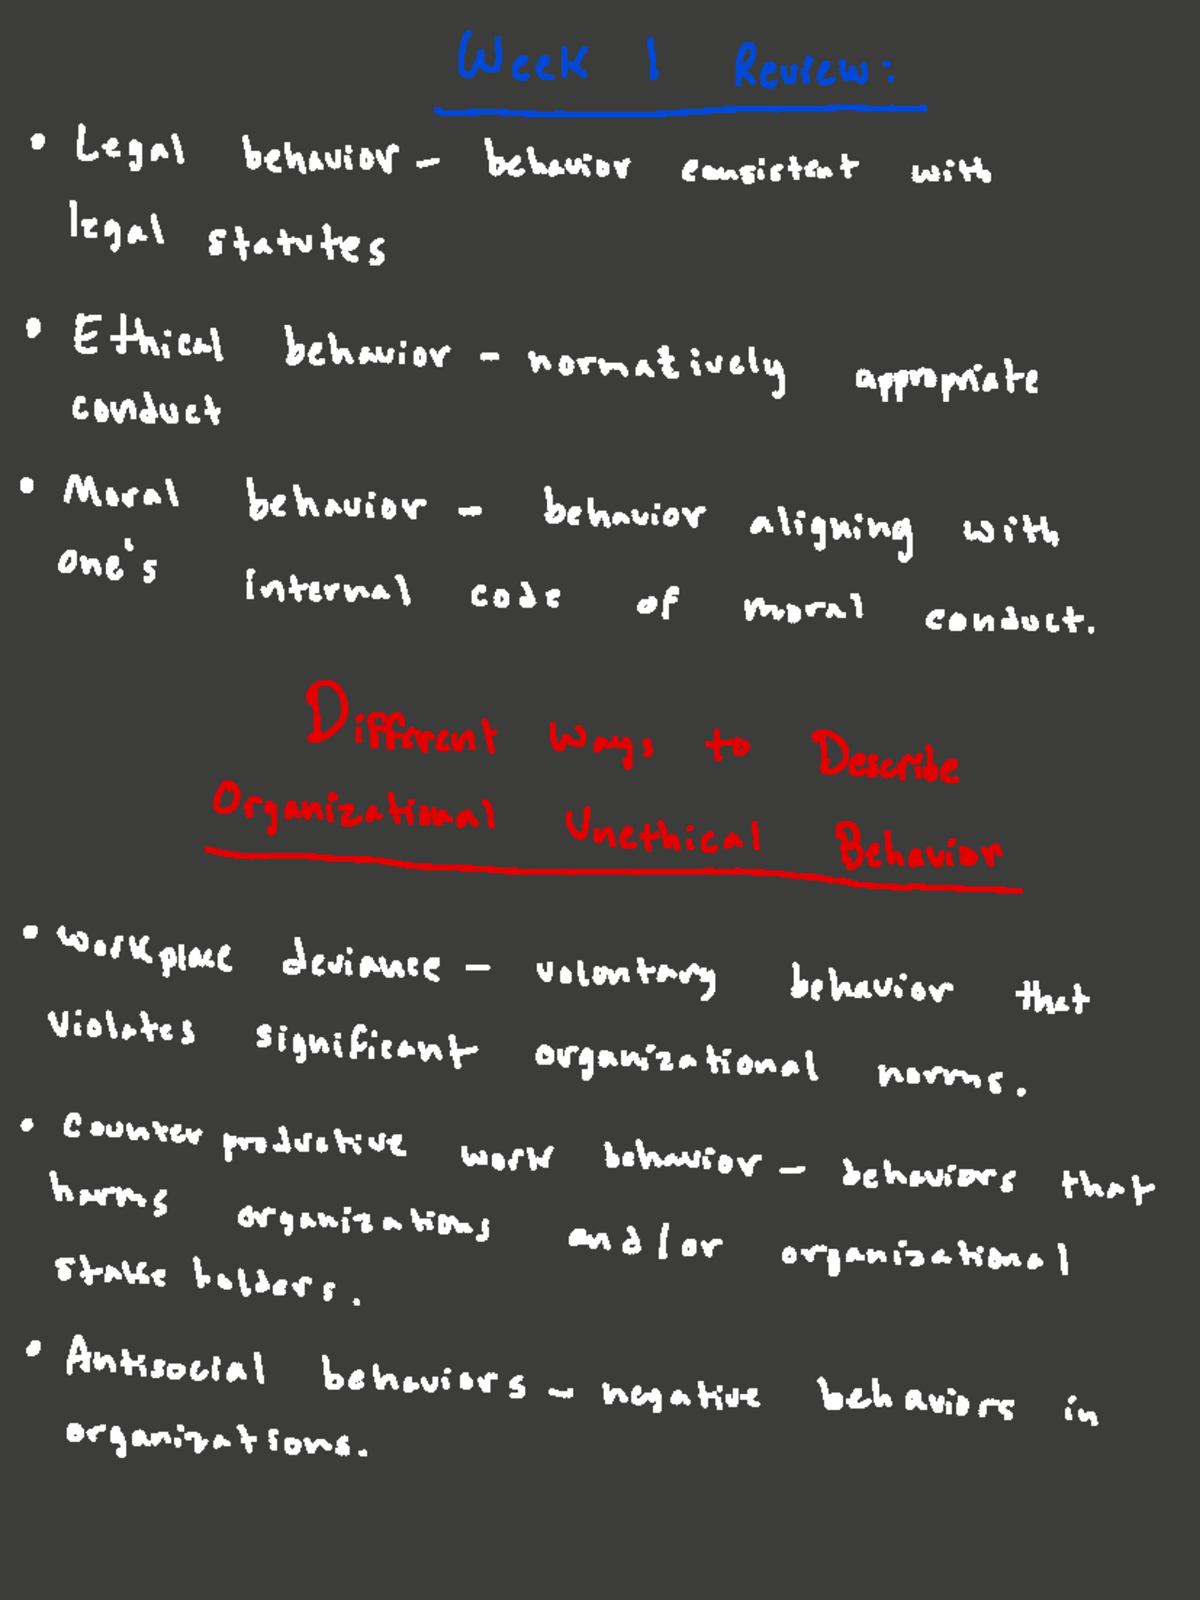 Week 1 Review:
• Legal behavior - behavior consistent with
legal statutes
• Ethical behavior - normatively appropriate
conduct
• Moral behavior - behavior aligning with
one's internal code of moral conduct.
Different Ways to Describe
Organizational Unethical Behavior
• Workplace deviance - volontary behavior that
violates significant organizational norms.
• Counter productive work behavior - behaviors that
harms organizations and/or organizational
stake holders.
• Antisocial behaviors - negative behaviors in
organizations.